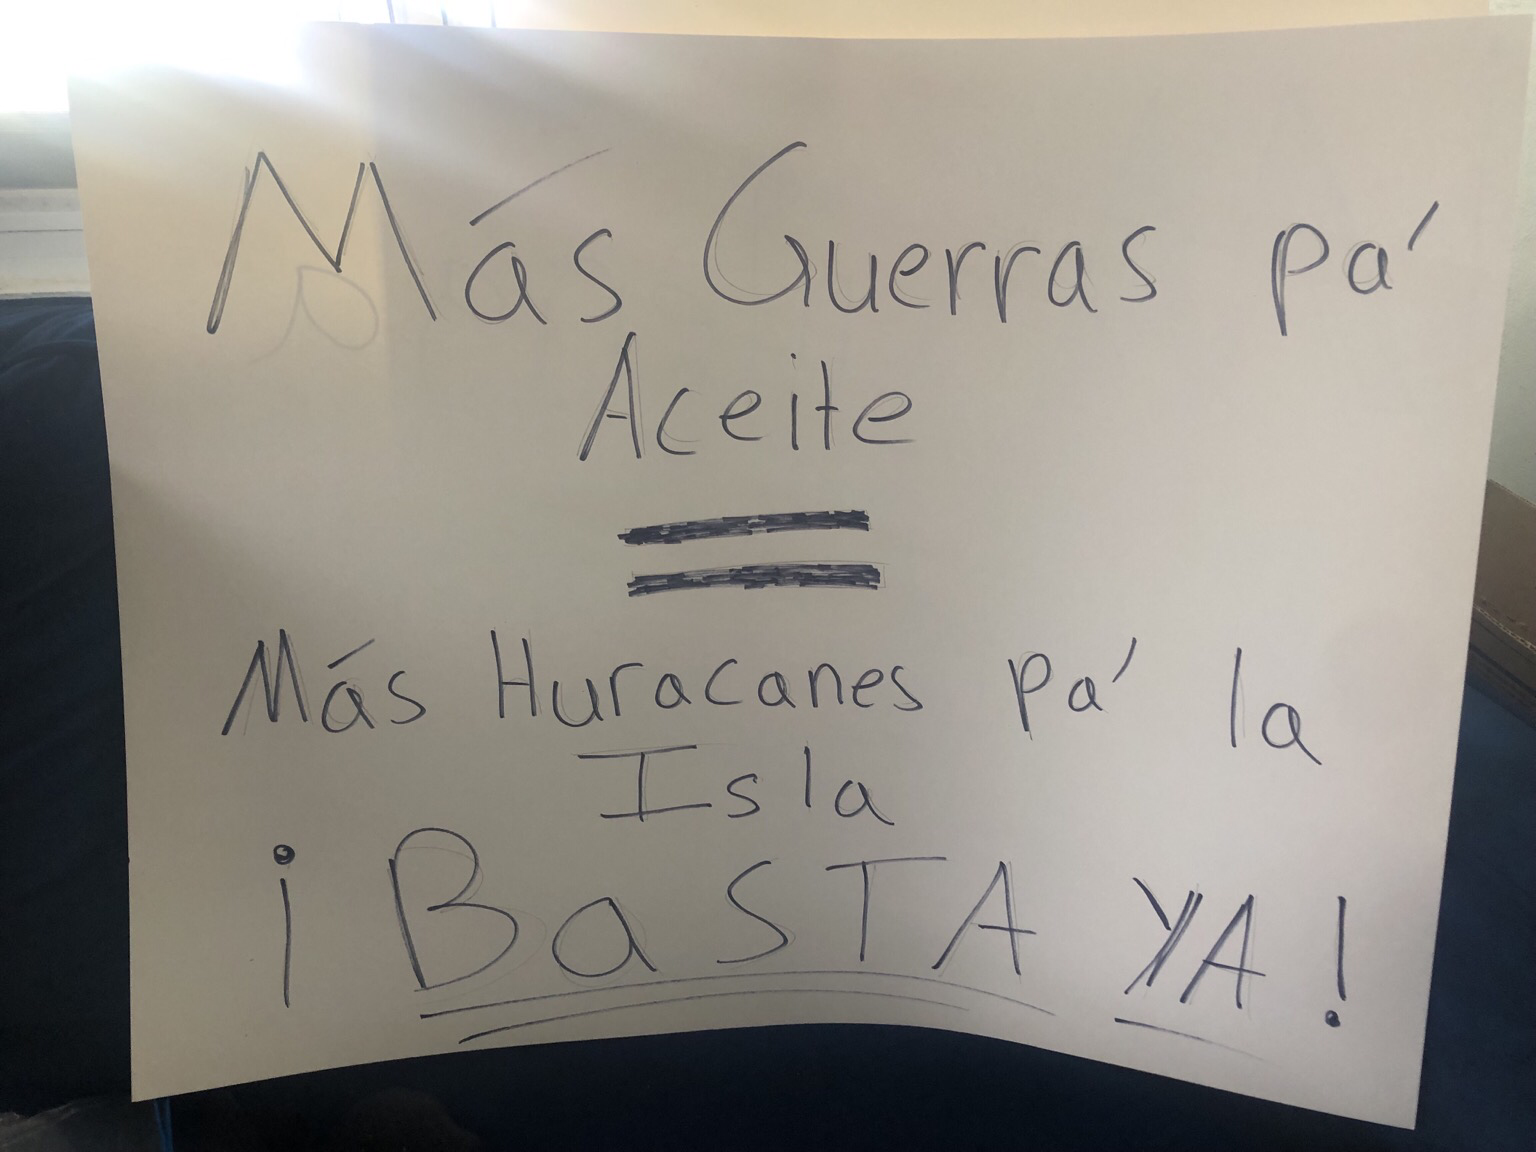 Más Guerras pa'
Aceite
=
Más Huracanes pa' la
Isla
¡BaSTA YA!